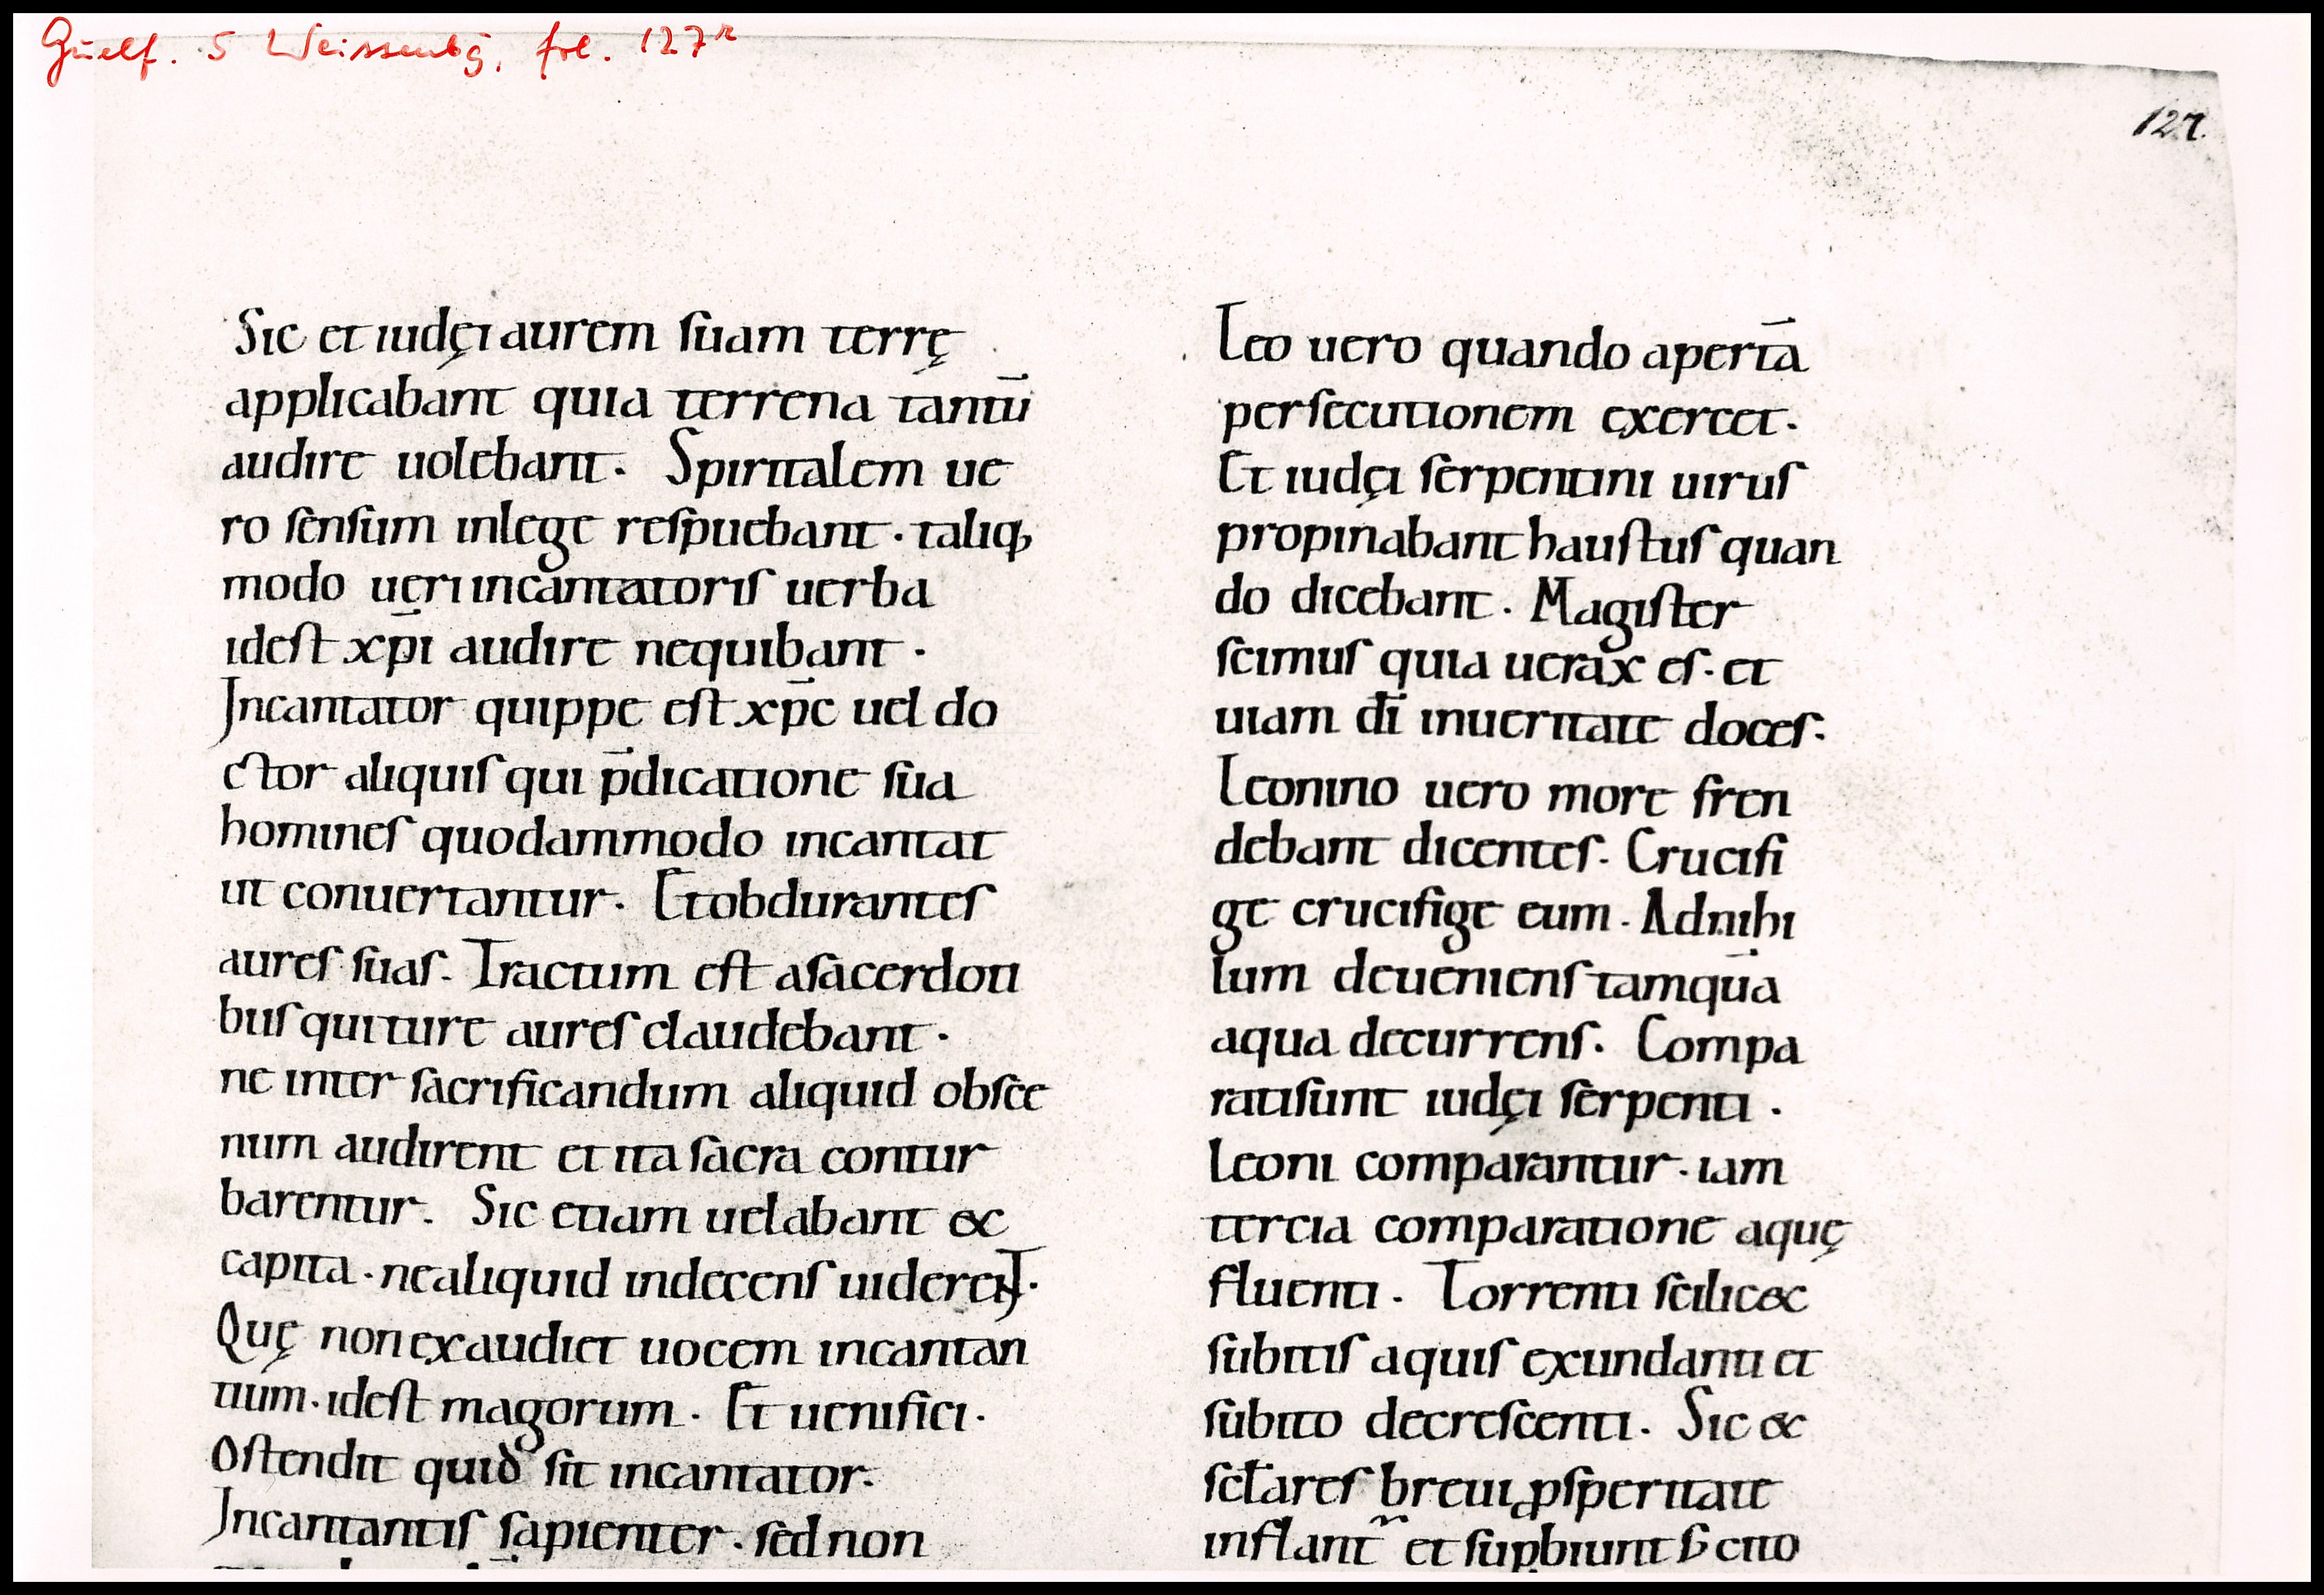 Guelf. 5 Weissenbg, fol. 127r
127.
Sic et iudęi aurem suam terrę
applicabant quia terrena tantū
audire uolebant. Spiritalem ue
ro sensum inlege respuebant. taliq;
modo ueri incantatoris uerba
idest xp̄i audire nequibant.
Incantator quippe est xp̄c uel do
ctor aliquis qui p̄dicatione sua
homines quodammodo incantat
ut conuertantur. Et obdurantes
aures suas. Tractum est a sacerdoti
bus qui ture aures claudebant.
ne inter sacrificandum aliquid obsce
num audirent et ita sacra contur
barentur. Sic etiam uelabant &
capita. ne aliquid indecens uiderent.
Quę non exaudiet uocem incantan
tium. idest magorum. Et uenifici.
Ostendit quid sit incantator.
Incantantis sapienter. sed non
Leo uero quando apertā
persecutionem exercet.
Et iudęi serpentini uirus
propinabant haustus quan
do dicebant. Magister
scimus quia uerax es. et
uiam dī inueritate doces.
Leonino uero more fren
debant dicentes. Crucifi
ge crucifige eum. Adnihi
lum deueniens tamquā
aqua decurrens. Compa
rati sunt iudęi serpenti.
Leoni comparantur. iam
tercia comparatione aquę
fluenti. Torrenti scilic&
subitis aquis exundanti et
subito decrescenti. Sic &
sclares breui ꝓsperitate
inflant᷑ et sup̱biunt s; cito